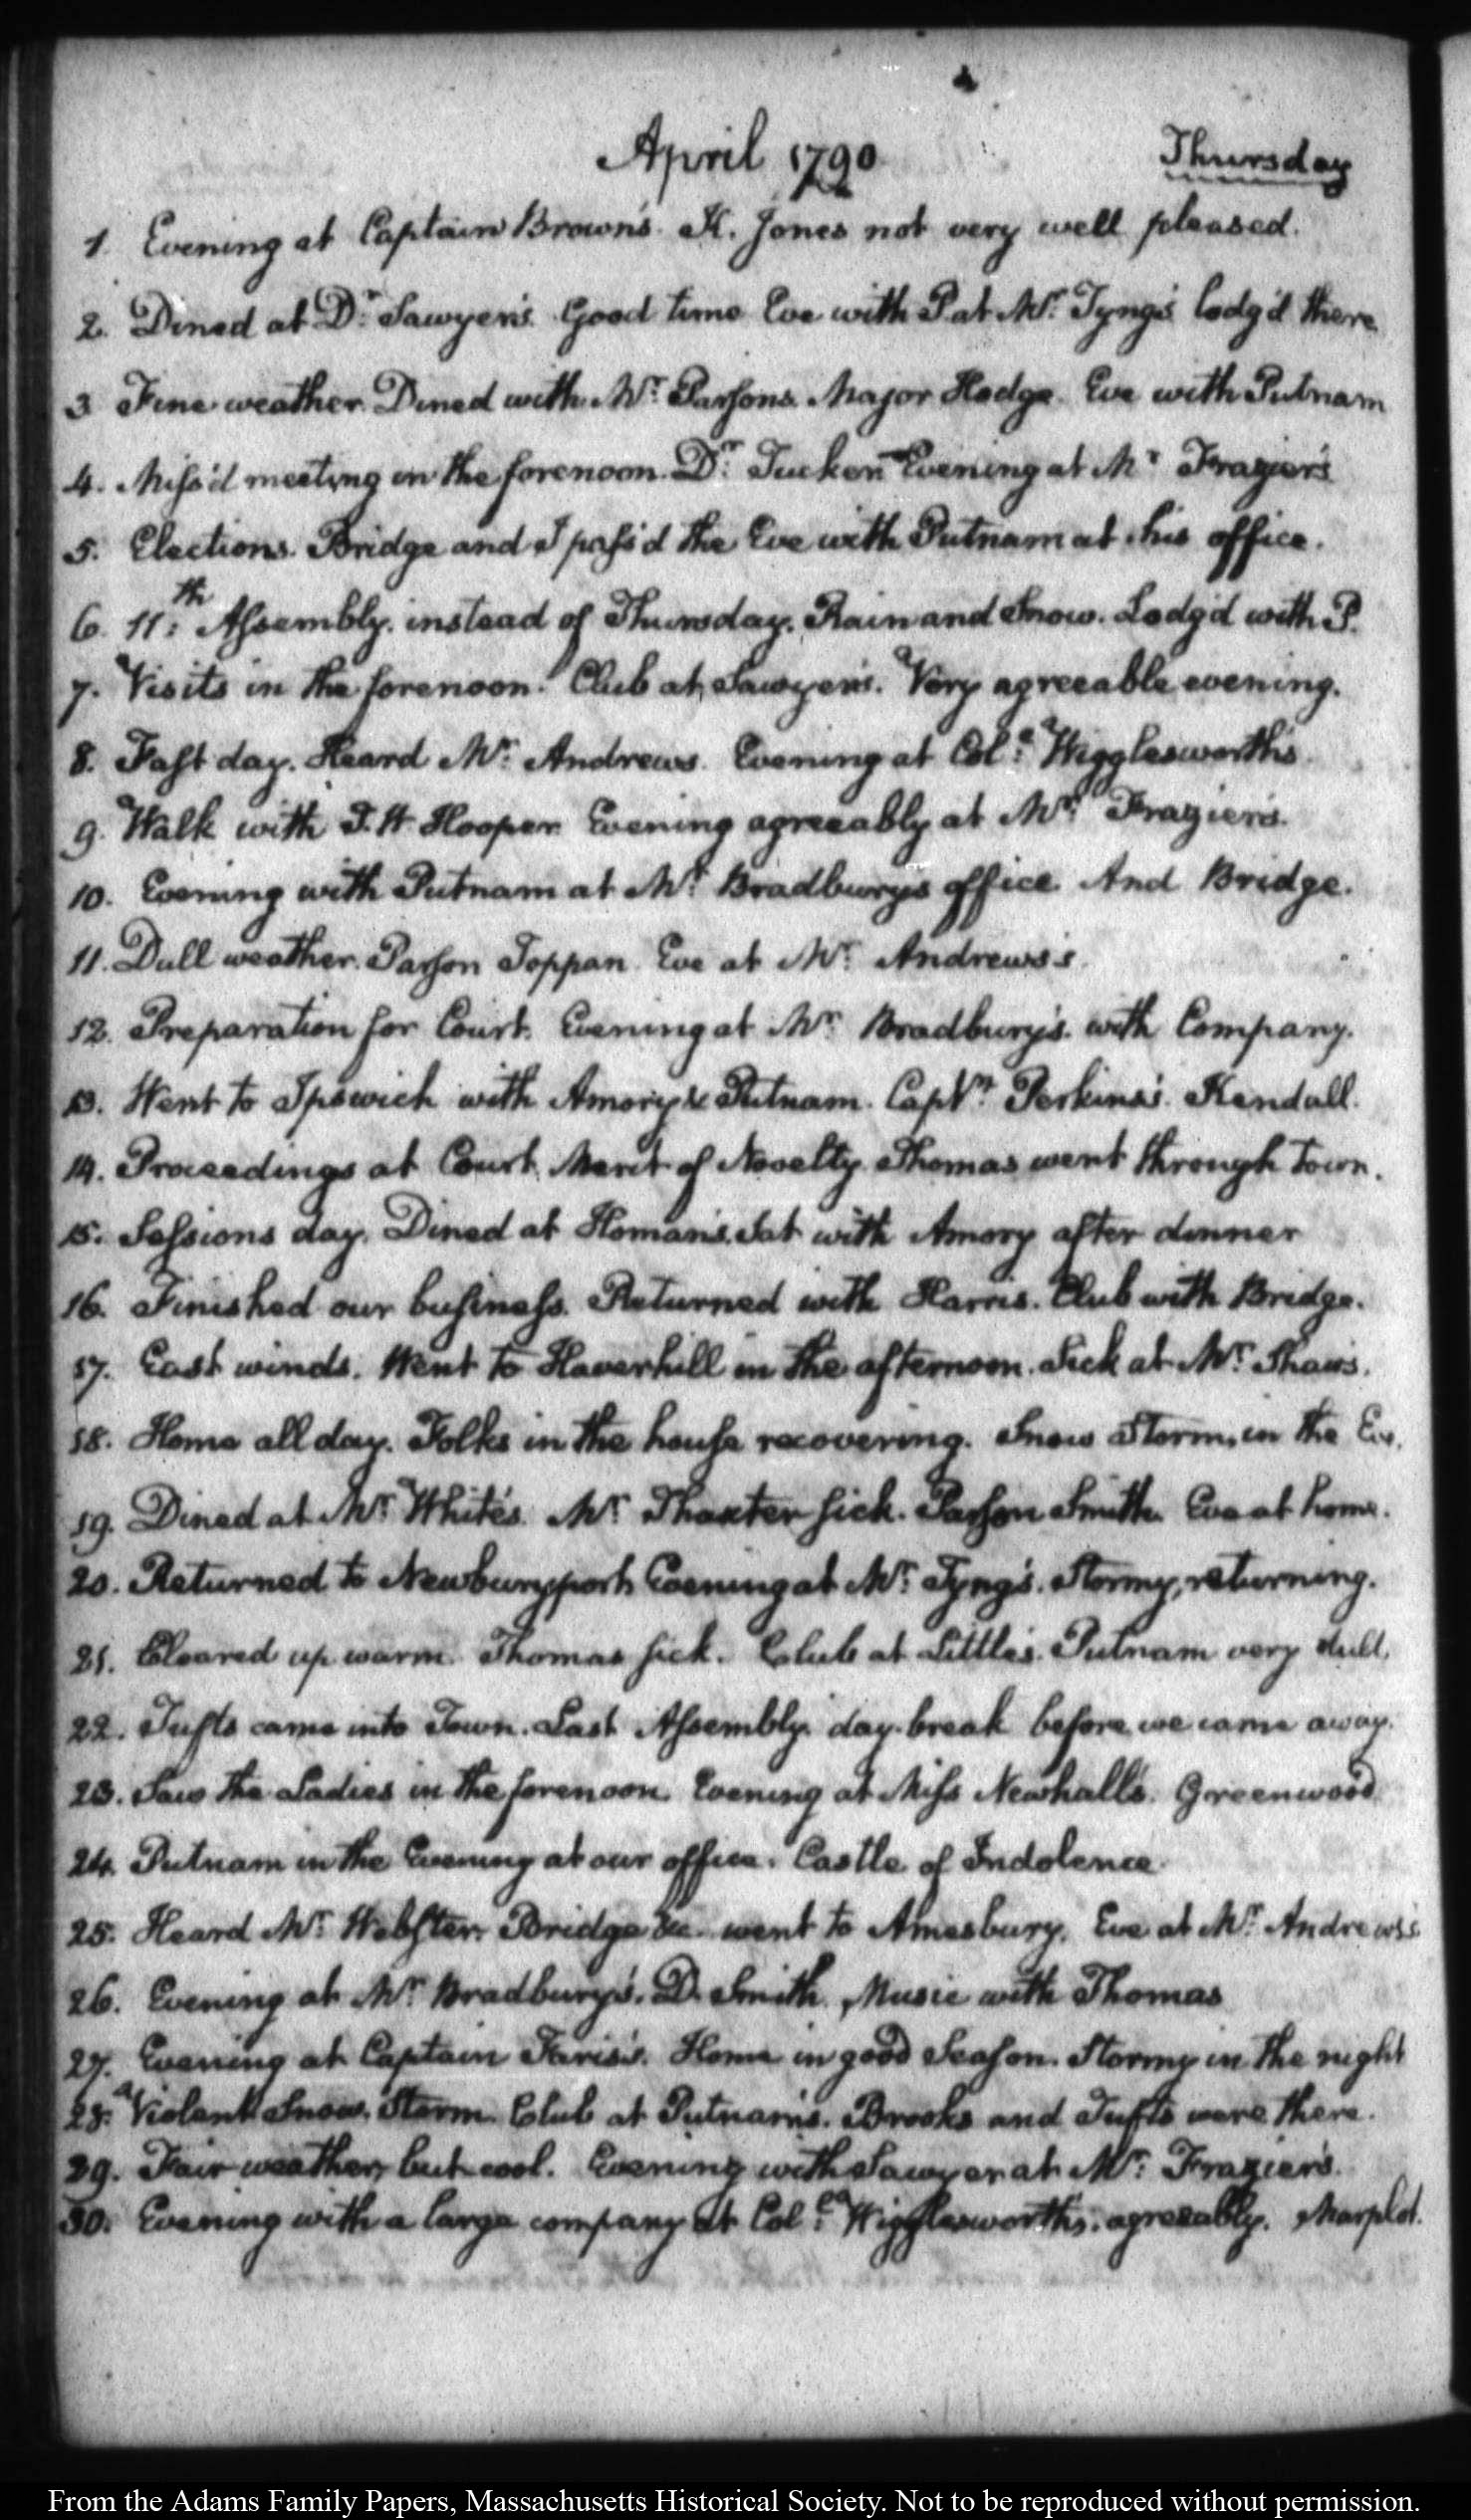 April 1790
Thursday
1. Evening at Captain Brown's. K. Jones not very well pleased.
2. Dined at Dr. Sawyer's. Good time Eve with P. at Mr. Tyng's lodg'd there
3 Fine weather. Dined with Mr. Parsons. Major Hodge. Eve with Putnam
4. Miss'd meeting in the forenoon. Dr. Tucker. Evening at Mr. Frazier's
5. Elections. Bridge and I pass'd the Eve with Putnam at his office.
6. 11th. Assembly. instead of Thursday. Rain and Snow. Lodg'd with P.
7. Visits in the forenoon. Club at Sawyer's. Very agreeable evening.
8. Fast day. Heard Mr. Andrews. Evening at Colo. Wigglesworth's
9. Walk with J. H. Hooper. Evening agreeably at Mr. Frazier's.
10. Evening with Putnam at Mr. Bradbury's office. And Bridge.
11. Dull weather. Parson Toppan. Eve at Mr. Andrews's.
12. Preparation for Court. Evening at Mr. Bradbury's. with Company.
13. Went to Ipswich with Amory & Putnam. Captn. Perkins's. Kendall.
14. Proceedings at Court. Merit of Novelty. Thomas went through town.
15. Sessions day. Dined at Homan's. Sat with Amory after dinner
16. Finished our business. Returned with Harris. Club with Bridge.
17. East winds. Went to Haverhill in the afternoon. Sick at Mr. Shaw's.
18. Home all day. Folks in the house recovering. Snow Storm, in the Eve.
19. Dined at Mr. White's. Mr. Thaxter sick. Parson Smith. Eve at home.
20. Returned to Newburyport. Evening at Mr. Tyng's. Stormy, returning.
21. Cleared up warm. Thomas sick. Club at Little's. Putnam very dull.
22. Tufts came into Town. Last Assembly. day-break before we came away.
23. Saw the Ladies in the forenoon. Evening at Miss Newhall's. Greenwood
24. Putnam in the Evening at our office. Castle of Indolence.
25. Heard Mr. Webster. Bridge &c went to Amesbury. Eve at Mr. Andrews's
26. Evening at Mr. Bradbury's. D. Smith. Music with Thomas
27. Evening at Captain Faris's. Home in good Season. Stormy in the night
28. Violent Snow, Storm. Club at Putnam's. Brooks and Tufts were there.
29. Fair weather, but cool. Evening with Sawyer at Mr. Frazier's.
30. Evening with a large company at Colo. Wigglesworth's, agreeably. Marplot.
From the Adams Family Papers, Massachusetts Historical Society. Not to be reproduced without permission.